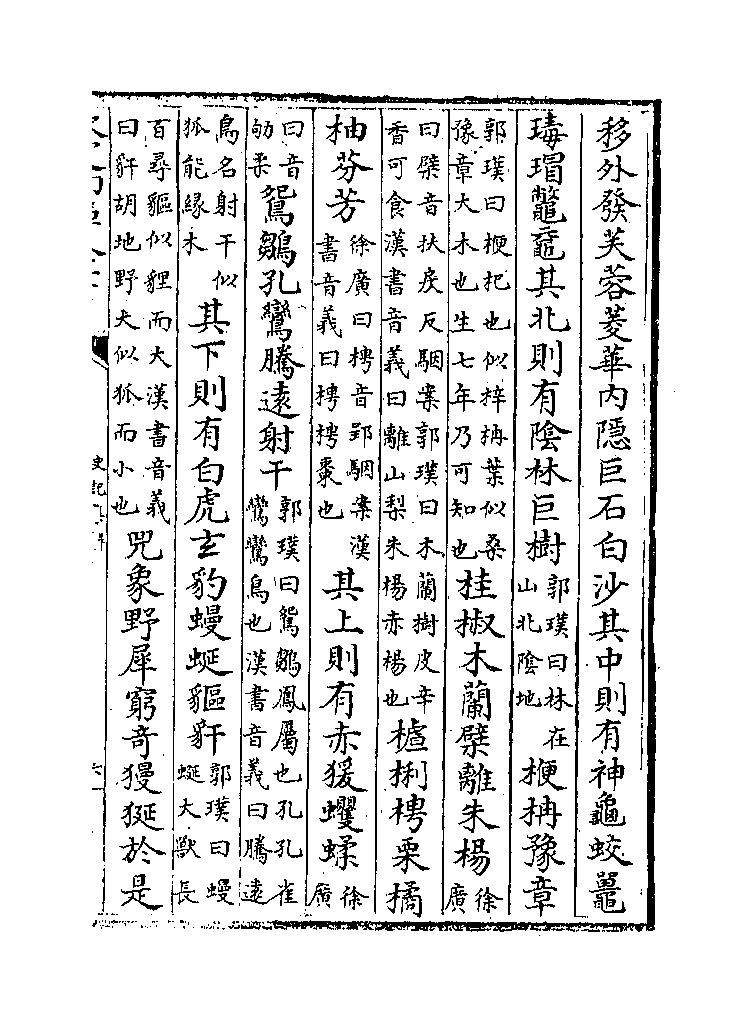 移外發芙蓉菱華内隱巨石白沙其中則有神龜蛟鼉
瑇瑁鼈黿其北則有陰林巨樹郭璞曰林在山北陰地楩柟豫章
郭璞曰楩杞也似梓柟葉似桑豫章大木也生七年乃可知也桂椒木蘭檗離朱楊徐廣
曰檗音扶戾反駰案郭璞曰木蘭樹皮辛香可食漢書音義曰離山梨朱楊赤楊也樝梸梬栗橘
柚芬芳徐廣曰梬音郢駰案漢書音義曰梬梬棗也其上則有赤猨蠷蝚徐廣
曰音劬柔鵷鶵孔鸞騰遠射干郭璞曰鵷鶵鳳屬也孔孔雀鸞鸞鳥也漢書音義曰騰遠
鳥名射干似狐能緣木其下則有白虎玄豹蟃蜒貙豻郭璞曰蟃蜒大獸長
百尋貙似貍而大漢書音義曰豻胡地野犬似狐而小也兕象野犀窮奇獌狿於是